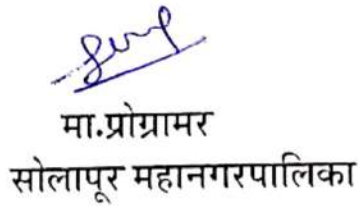 मा.प्रोग्रामर
सोलापूर महानगरपालिका